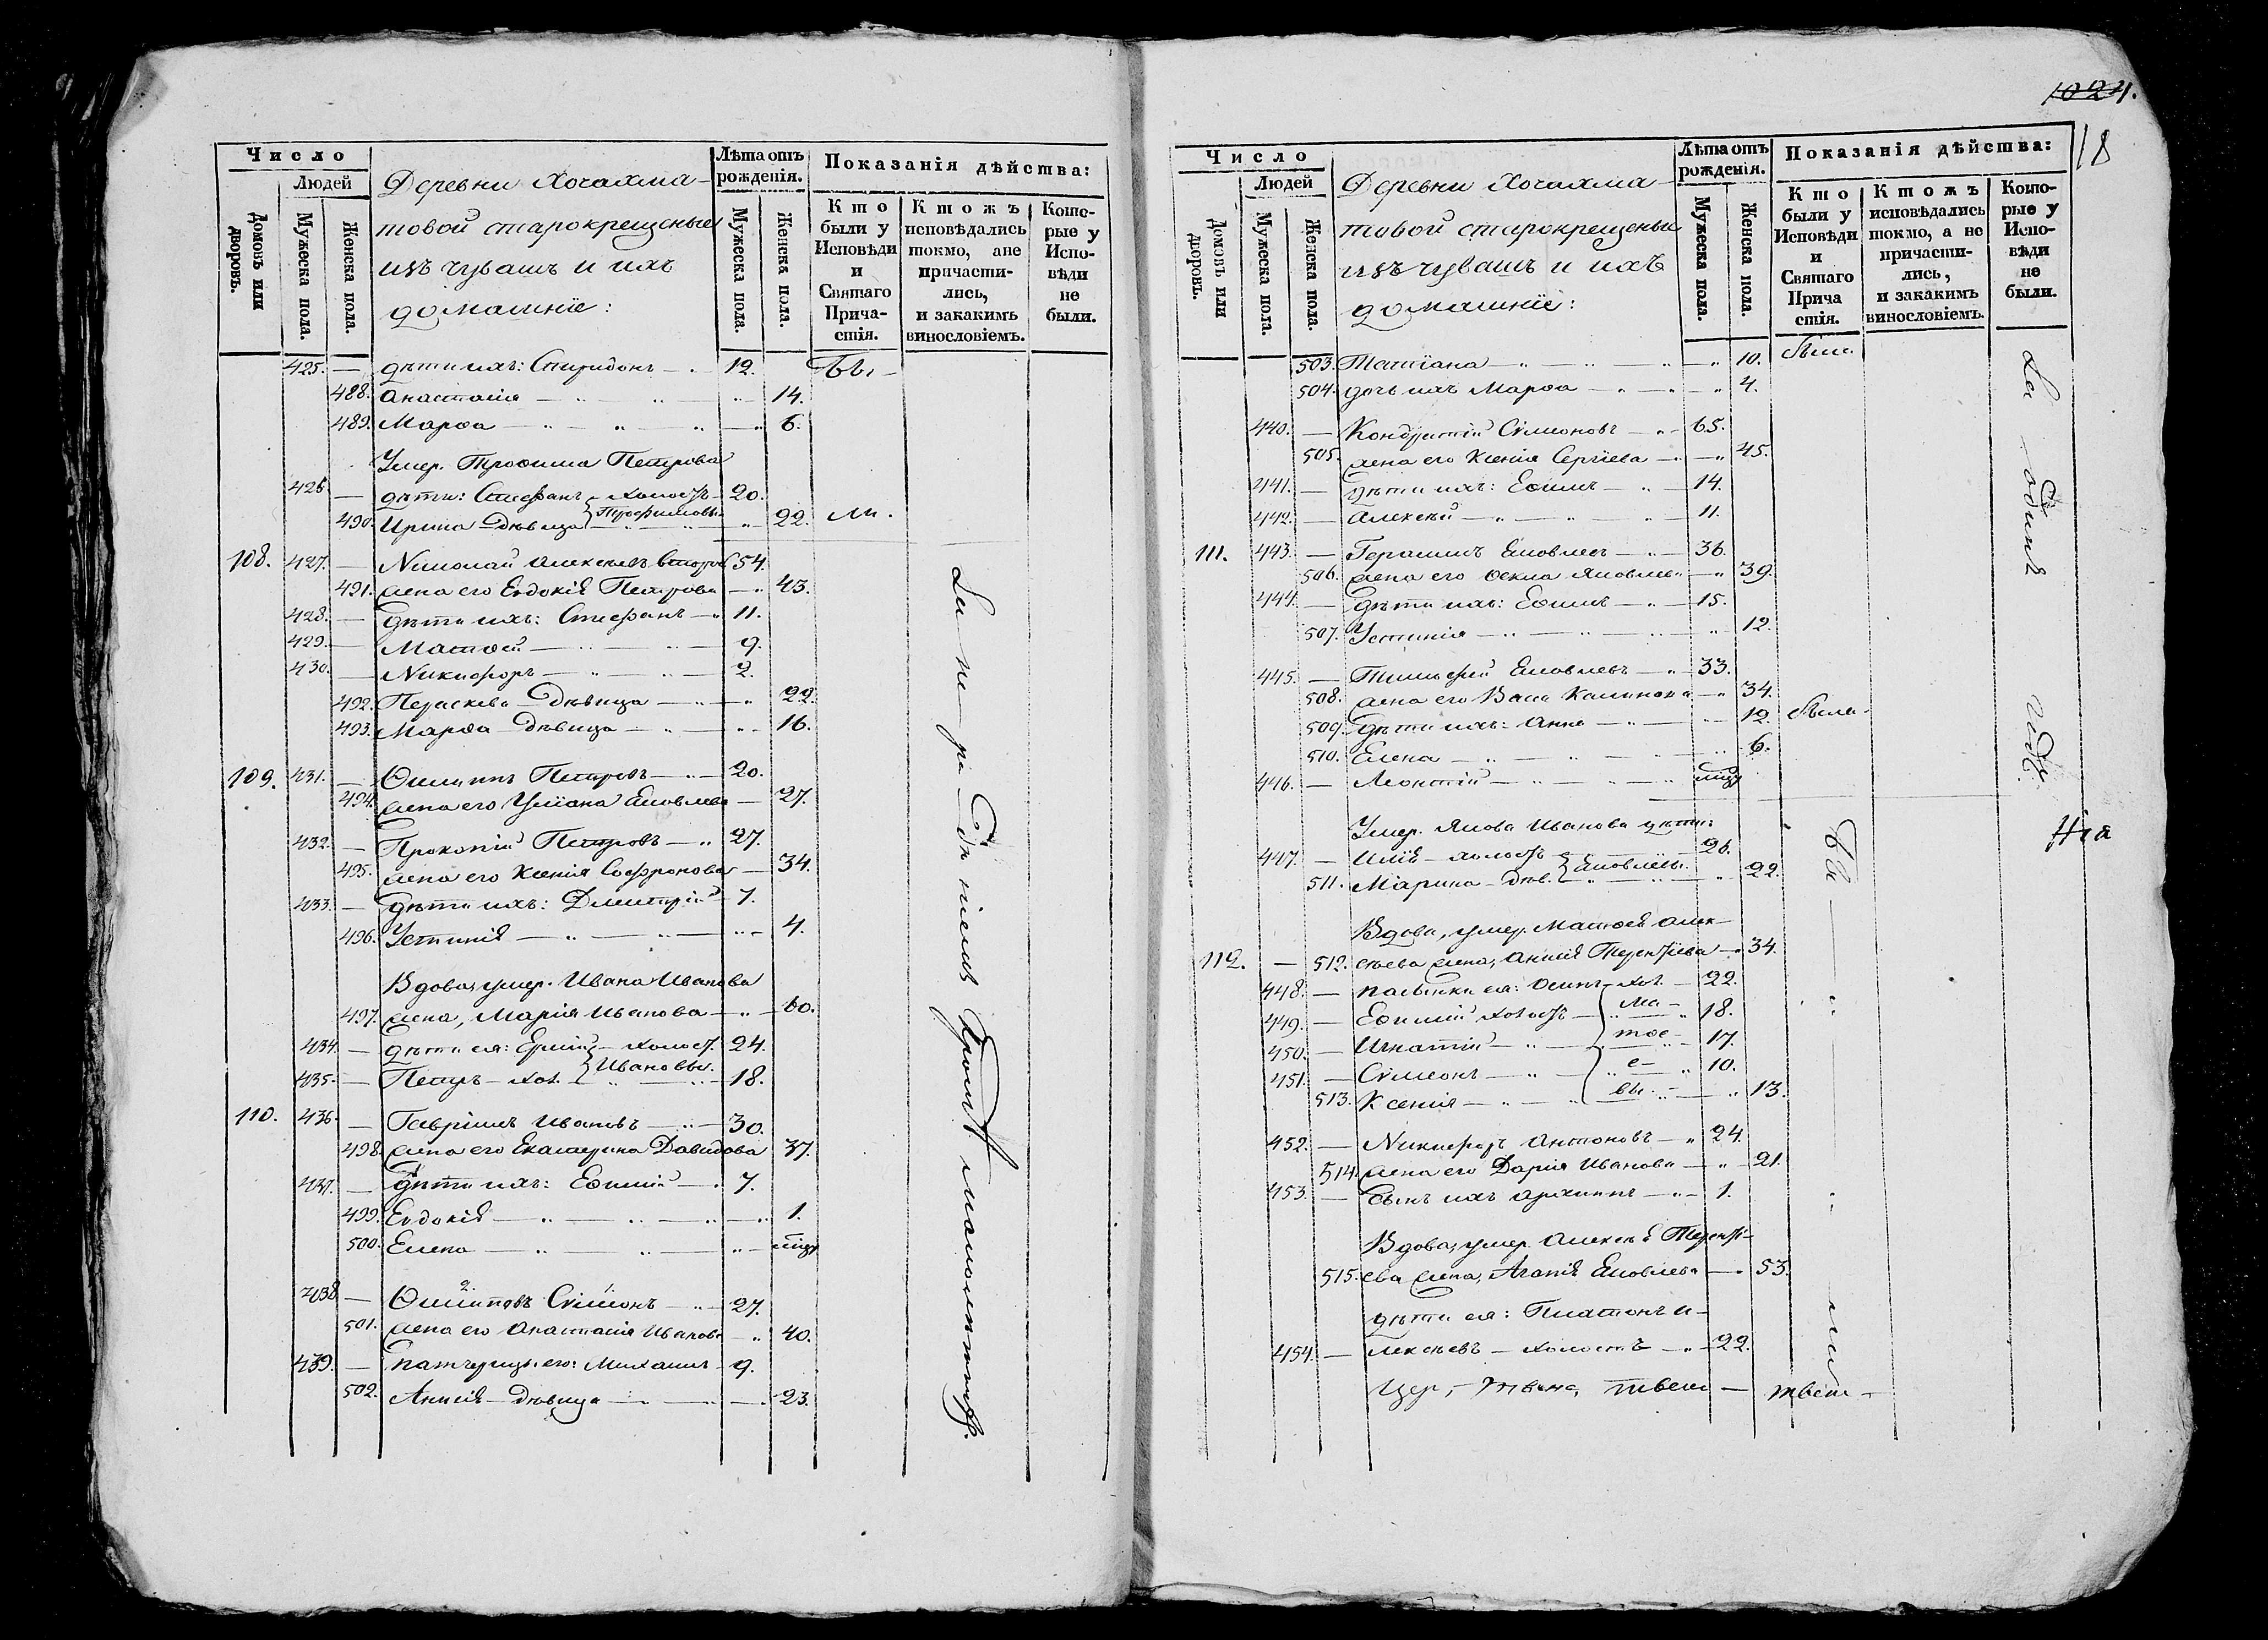 Число
Людей
Домовъ или дворовъ.
Мужеска пола.
Женска пола.
Деревни Хочахма-
товой старокрещеные
изъ чувашъ и ихъ
домашніе:
Лѣта отъ рожденія.
Мужеска пола.
Женска пола.
Показанія дѣйства:
Кто были у Исповѣди и Святаго Причастія.
Ктожъ исповѣдались токмо, а не причастились, и закакимъ винословіемъ.
Которые у Исповѣди не были.
425. — дѣти ихъ: Спиридонъ — 12. бы-
488. Анастасія — 14.
489. Марѳа — 6.
Умер. Трофима Петрова
426. — дѣти: Стефанъ - холостъ 20.
490. Ирина - дѣвица Трофимовы 22. ли.
108. 427. — Николай Алексѣевъ 54.
491. жена его Евдокія Петрова — 43.
428. — дѣти ихъ: Стефанъ — 11.
429. — Матѳей — 9.
430. — Никифоръ — 2.
492. Параскева - дѣвица — 22.
493. Марѳа дѣвица — 16.
109. 431. — Филиппъ Петровъ — 20.
494. жена его Уліана Яковлева — 27.
432. — Прокопій Петровъ — 27.
495. жена его Ксенія Софронова — 34.
433. — дѣти ихъ: Димитрій — 7.
496. Устинія — 4.
Вдова, умер. Ивана Иванова
497. жена, Марія Иванова — 60.
434. — дѣти ея: - холост. 24.
435. — Петръ - хол. Ивановы. 18.
110. 436. — Гавріилъ Ивановъ — 30.
498. жена его Екатерина Давидова 37.
437. — дѣти ихъ: Еѳимій — 7.
499. Евдокія — 1.
500. Елена —
438. — Симеонъ — 27.
501. жена его Анастасія Иванова — 40.
439. — его: Михаилъ 9.
502. Анисія - дѣвица — 23.
1024.
18
Число
Людей
Домовъ или дворовъ.
Мужеска пола.
Женска пола.
Деревни Хочахма-
товой старокрещеные
изъ чувашъ и ихъ
домашніе:
Лѣта отъ рожденія.
Мужеска пола.
Женска пола.
Показанія дѣйства:
Кто были у Исповѣди и Святаго Причастія.
Ктожъ исповѣдались токмо, а не причастились, и закакимъ винословіемъ.
Которые у Исповѣди не были.
503. Татіана — 10.
504. дочь ихъ Марѳа — 4.
440. — Кондратій Сѵмеоновъ — 65.
505. жена его Ксенія Сергіева — 45.
441. — дѣти ихъ: Еѳимъ — 14.
442. — Алексѣй — 11.
111. 443. — Герасимъ Яковлевъ — 36.
506. жена его Ѳекла Яковлева — 39.
444. — дѣти ихъ: Еѳимъ — 15.
507. Устинія — 12.
445. — Тимоѳей Яковлевъ — 33.
508. жена его Васса — 34.
509. дѣти ихъ: Анна — 12. была.
510. Елена — 6.
446. — Леонтій —
Умер. Якова Иванова дѣти:
447. — Илія - холостъ 26.
511. Марина - дѣв. Яковлевы. 22.
Вдова, умер. Матѳея Алек-
112. — 512. сѣева жена, Анисія Терентіева — 34.
448. — пасынки ея: Осипъ - хол. — 22.
449. — Еѳимій холостъ — Ма- 18.
450. — Игнатій — тѳе- 17.
451. — Сѵмеонъ — е- 10.
513. Ксенія — вы. 13.
452. — Никифоръ Антоновъ — 24.
514. жена его Дарія Иванова — 21.
453. — сынъ ихъ Архиппъ — 1.
Вдова, умер. Алексѣя Терентi-
515. ева жена, Агапія Яковлева — 53.
дѣти ея: Платонъ А-
454. — лексѣевъ - холостъ — 22.
бы — ли